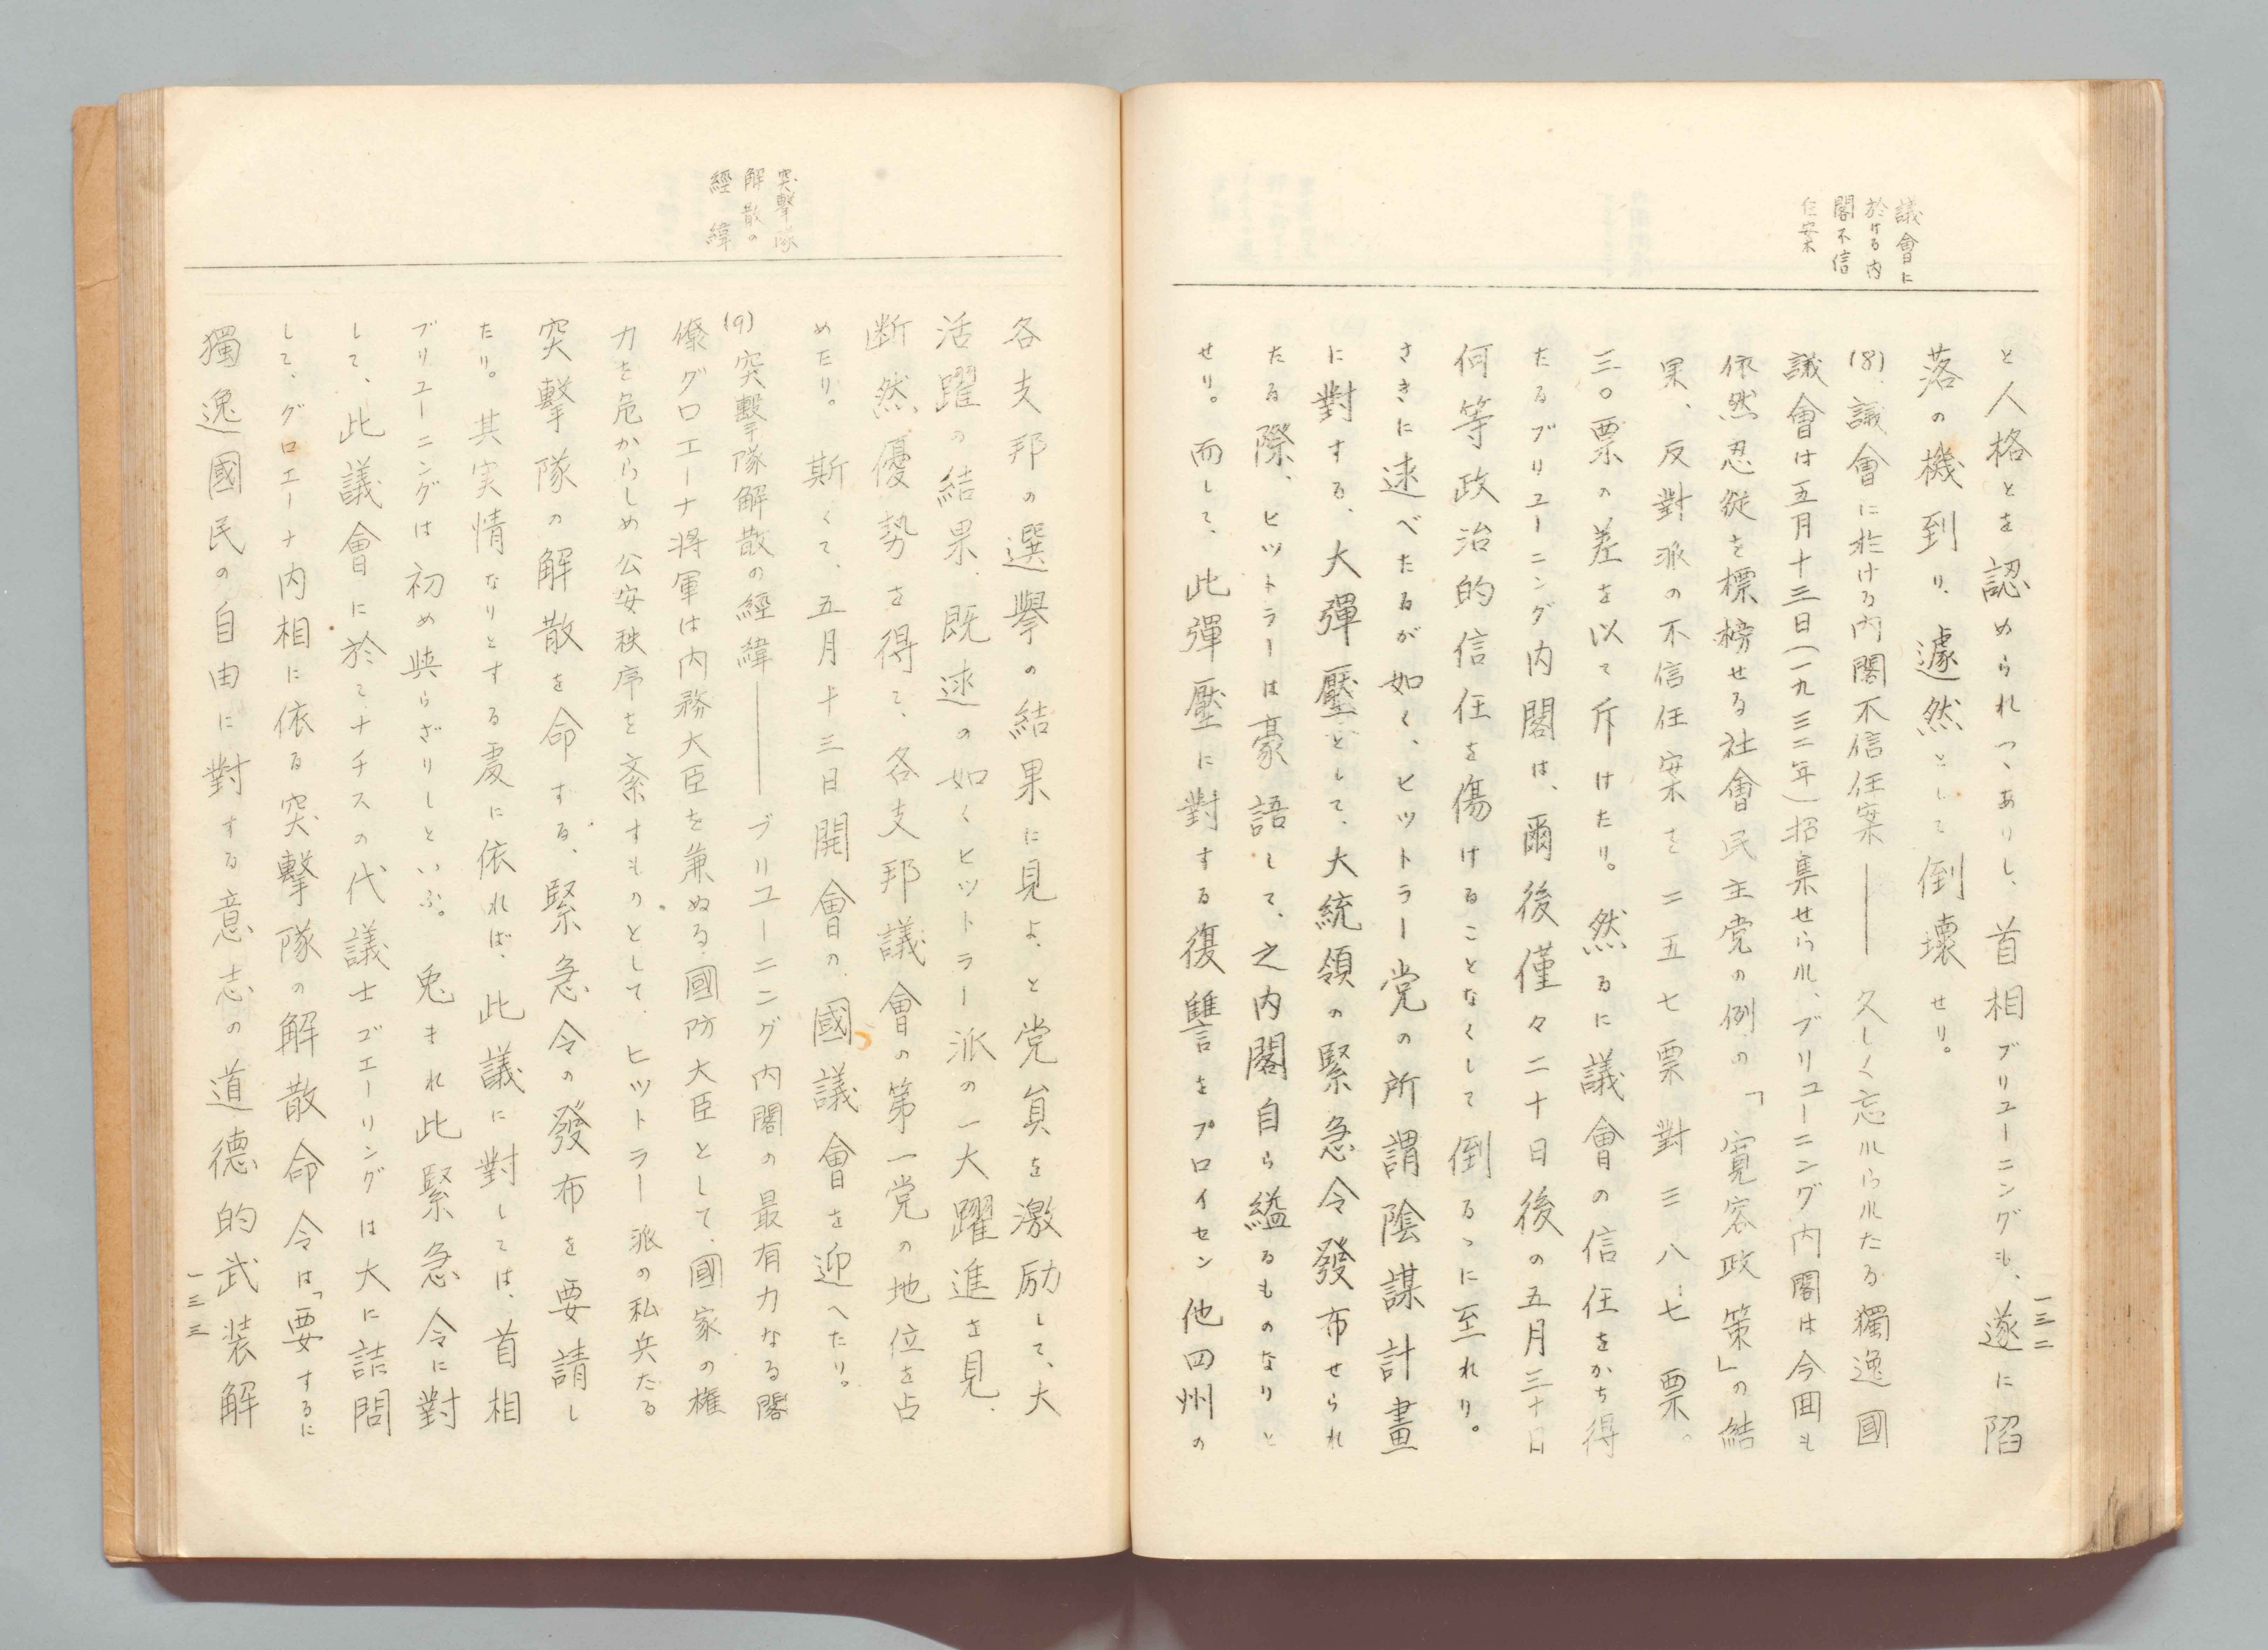 一三二
議會に
於ける内
閣不信
任案
と人格とを認められつゝありし、首相ブリユーニングも、遂に陷
落の機到り、遽然として倒壞せり。
(8)、議會に於ける内閣不信任案―――久しく忘れられたる獨逸國
議會は五月十三日(一九三二年)招集せられ、ブリユーニング内閣は今囬も
依然忍從を標榜せる社會民主党の例の「寛容政策」の結
果、反對派の不信任案を二五七票對三八七票。
三〇票の差を以て斥けたり。然るに議會の信任をかち得
たるブリユーニング内閣は、爾後僅々二十日後の五月三十日
何等政治的信任を傷けることなくして倒るゝに至れり。
さきに述べたるが如く、ヒツトラー党の所謂陰謀計畫
に對する、大彈壓として、大統領の緊急令發布せられ
たる際、ヒツトラーは豪語して、之内閣自ら縊るものなりと
せり。而して、此彈壓に對する復讐をプロイセン他四州の
突擊隊
解散の
經緯
各支邦の選擧の結果に見よ、と党員を激励して、大
活躍の結果、既述の如くヒツトラー派の一大躍進を見、
断然優勢を得て、各支邦議會の第一党の地位を占
めたり。斯くて、五月十三日開會の國議會を迎へたり。
(9)突擊隊解散の經緯―――ブリユーニング内閣の最有力なる閣
僚グロエーナ将軍は内務大臣を兼ぬる國防大臣として、國家の權
力を危からしめ公安秩序を紊すものとして、ヒツトラー派の私兵たる
突擊隊の解散を命する、緊急令の發布を要請し
たり。其実情なりとする處に依れば、此議に對しては、首相
ブリユーニングは初め与らざりしといふ。兎まれ此緊急令に對
して、此議會に於てナチスの代議士ゴエーリングは大に詰問
して、グロエーナ内相に依る突擊隊の解散命令は「要するに
獨逸國民の自由に對する意志の道德的武装解
一三三